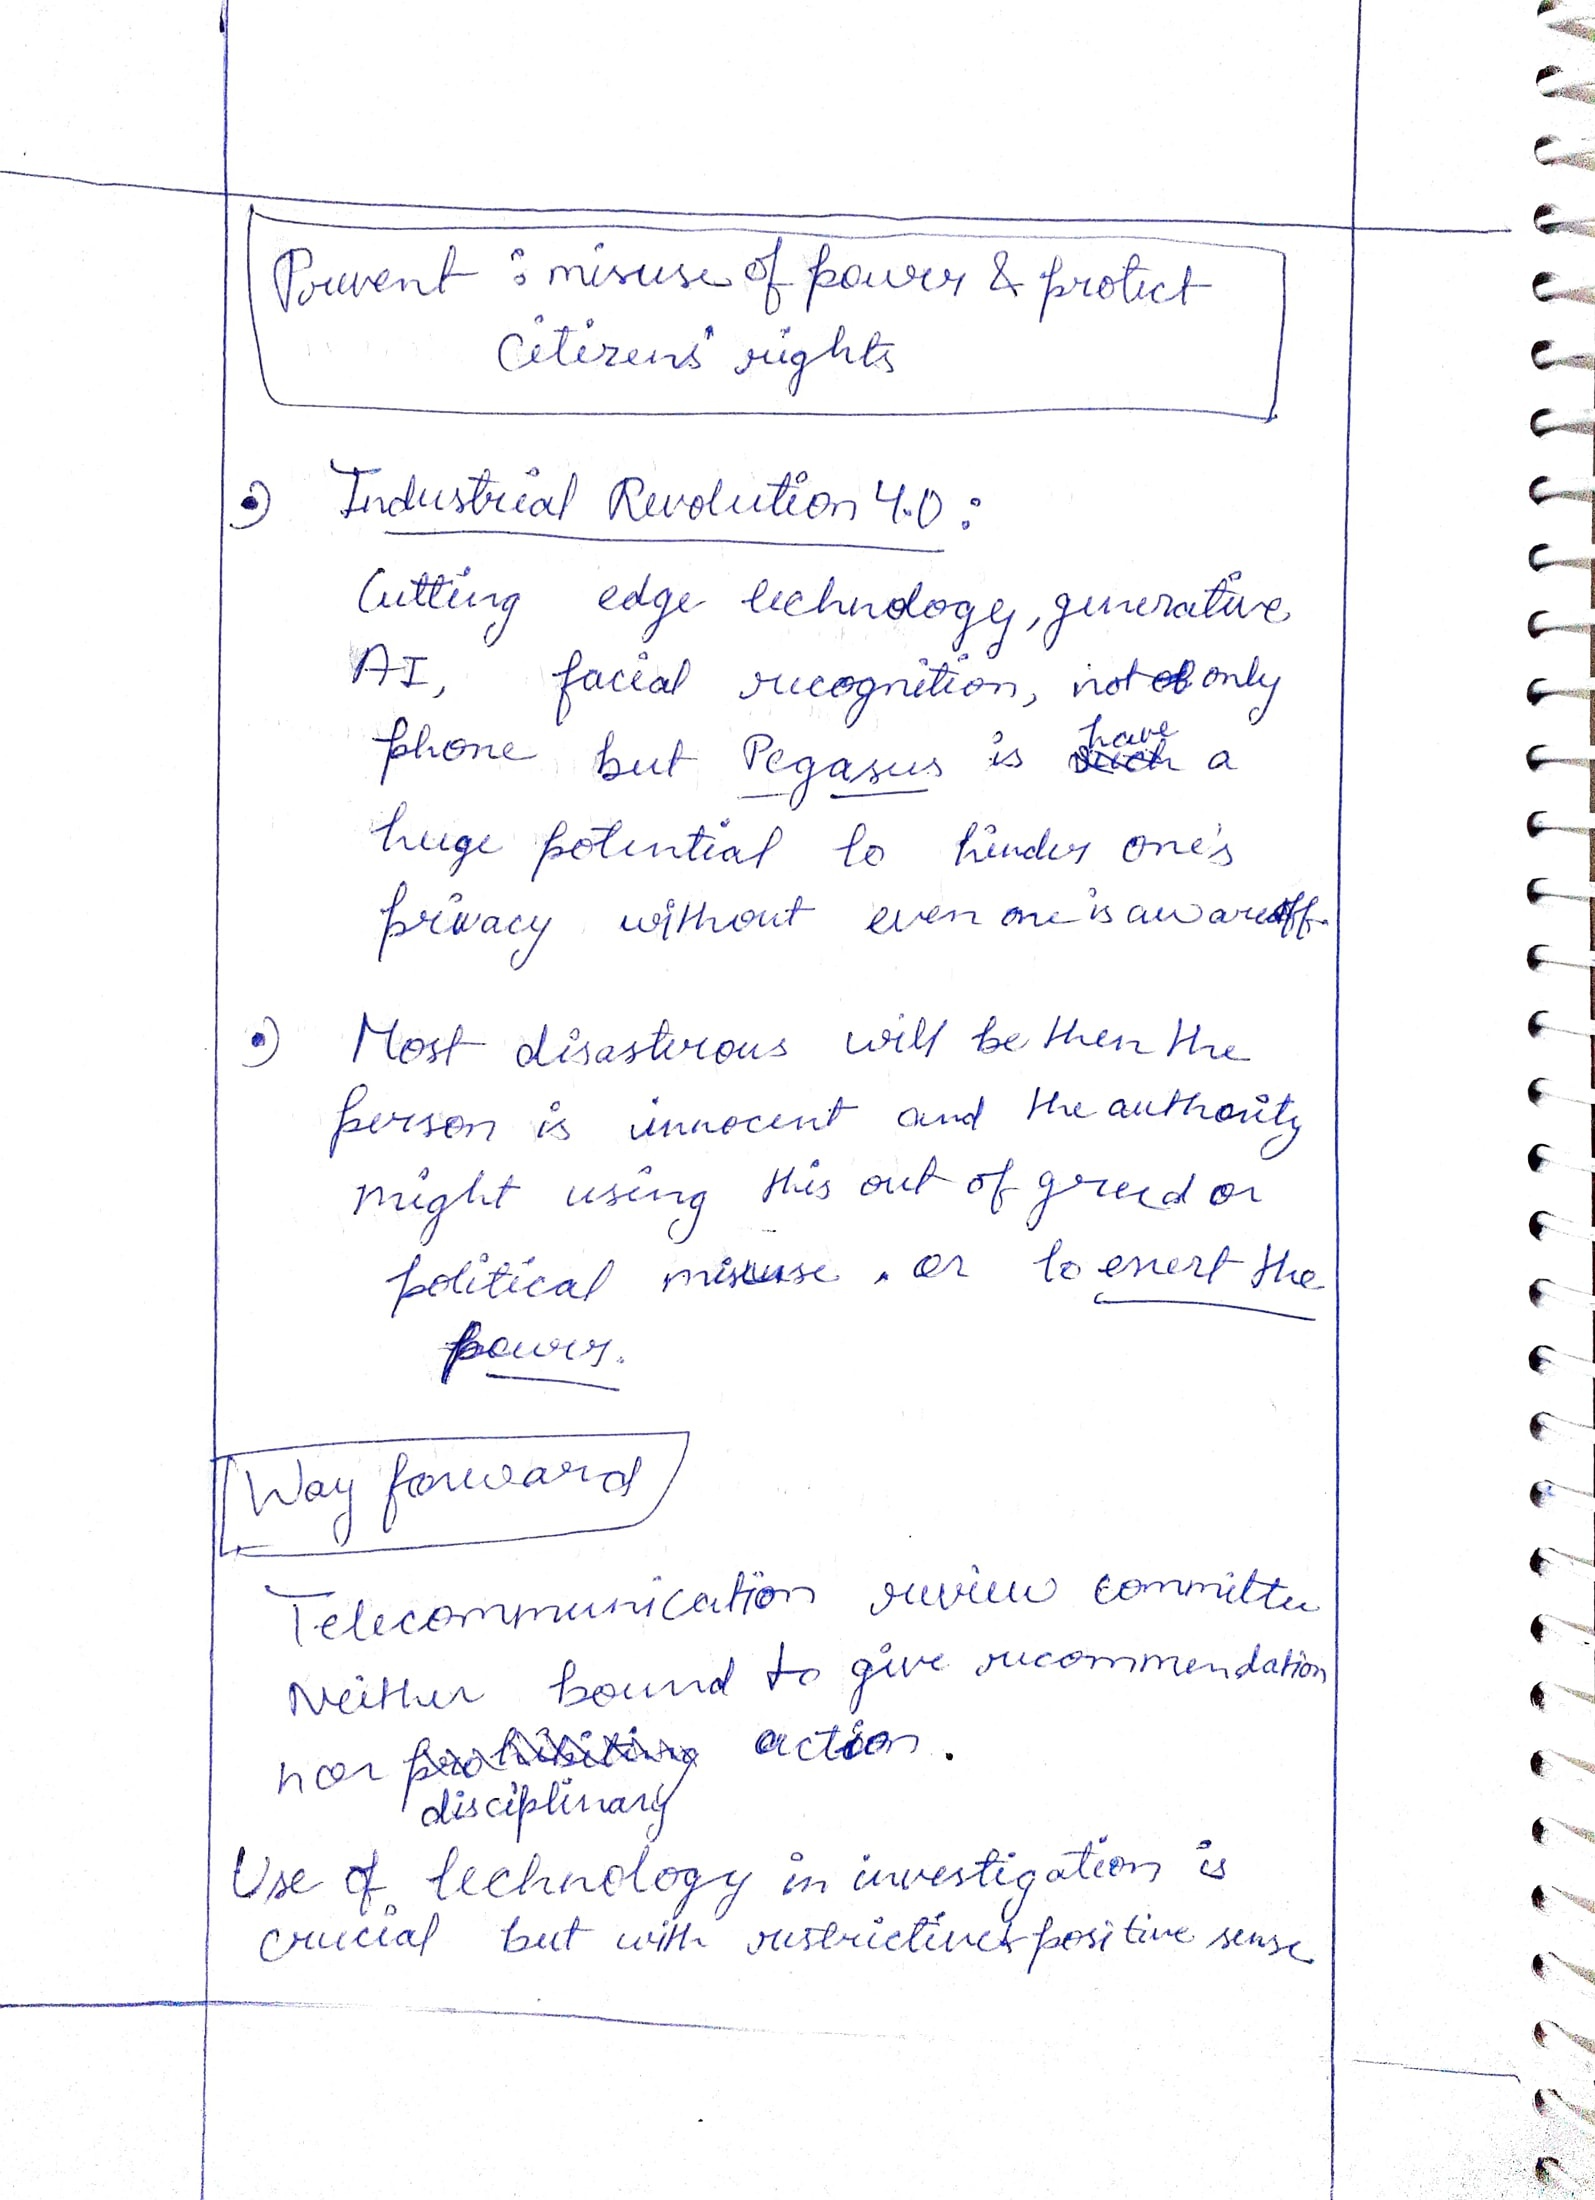 Prevent : misuse of power & protect
Citizens' rights
Industrial Revolution 4.0 :
Cutting edge technology, generative
AI, facial recognition, not only
phone but Pegasus is have a
huge potential to hinder one's
privacy without even one is aware off.
Most disasterous will be then the
person is innocent and the authority
might using this out of greed or
political misuse . or to exert the
power.
Way forward
Telecommunication review committee
Neither bound to give recommendation
nor prohibiting action.
disciplinary
Use of technology in investigation is
crucial but with restrictive positive sense